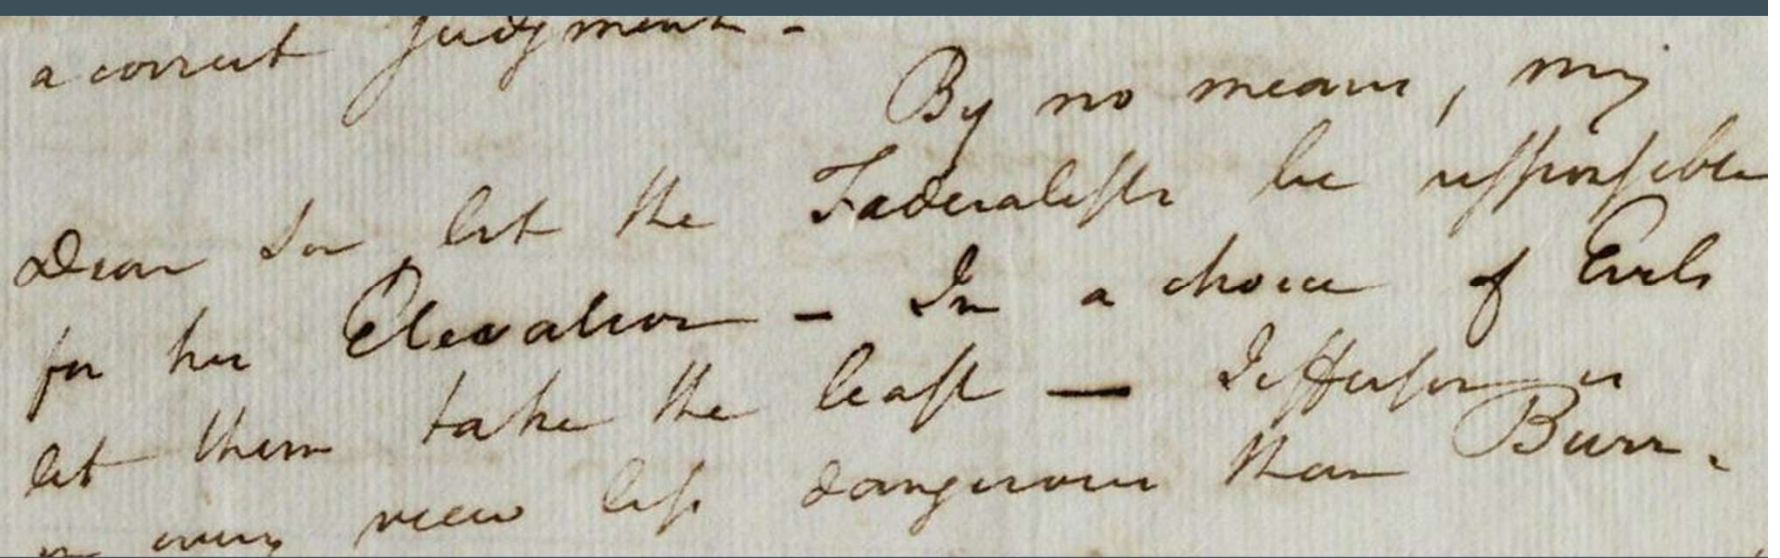 a correct judgment -
By no means, my
Dear Sir, let the Fæderalists be responsible
for his Elevation - In a choice of Evils
let them take the least — Jefferson is
in every view less dangerous than Burr.